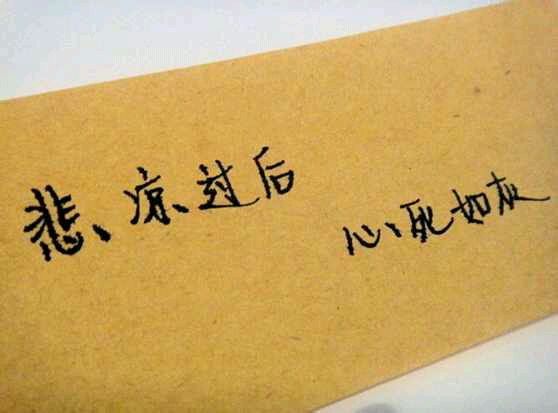 悲凉过后
心死如灰